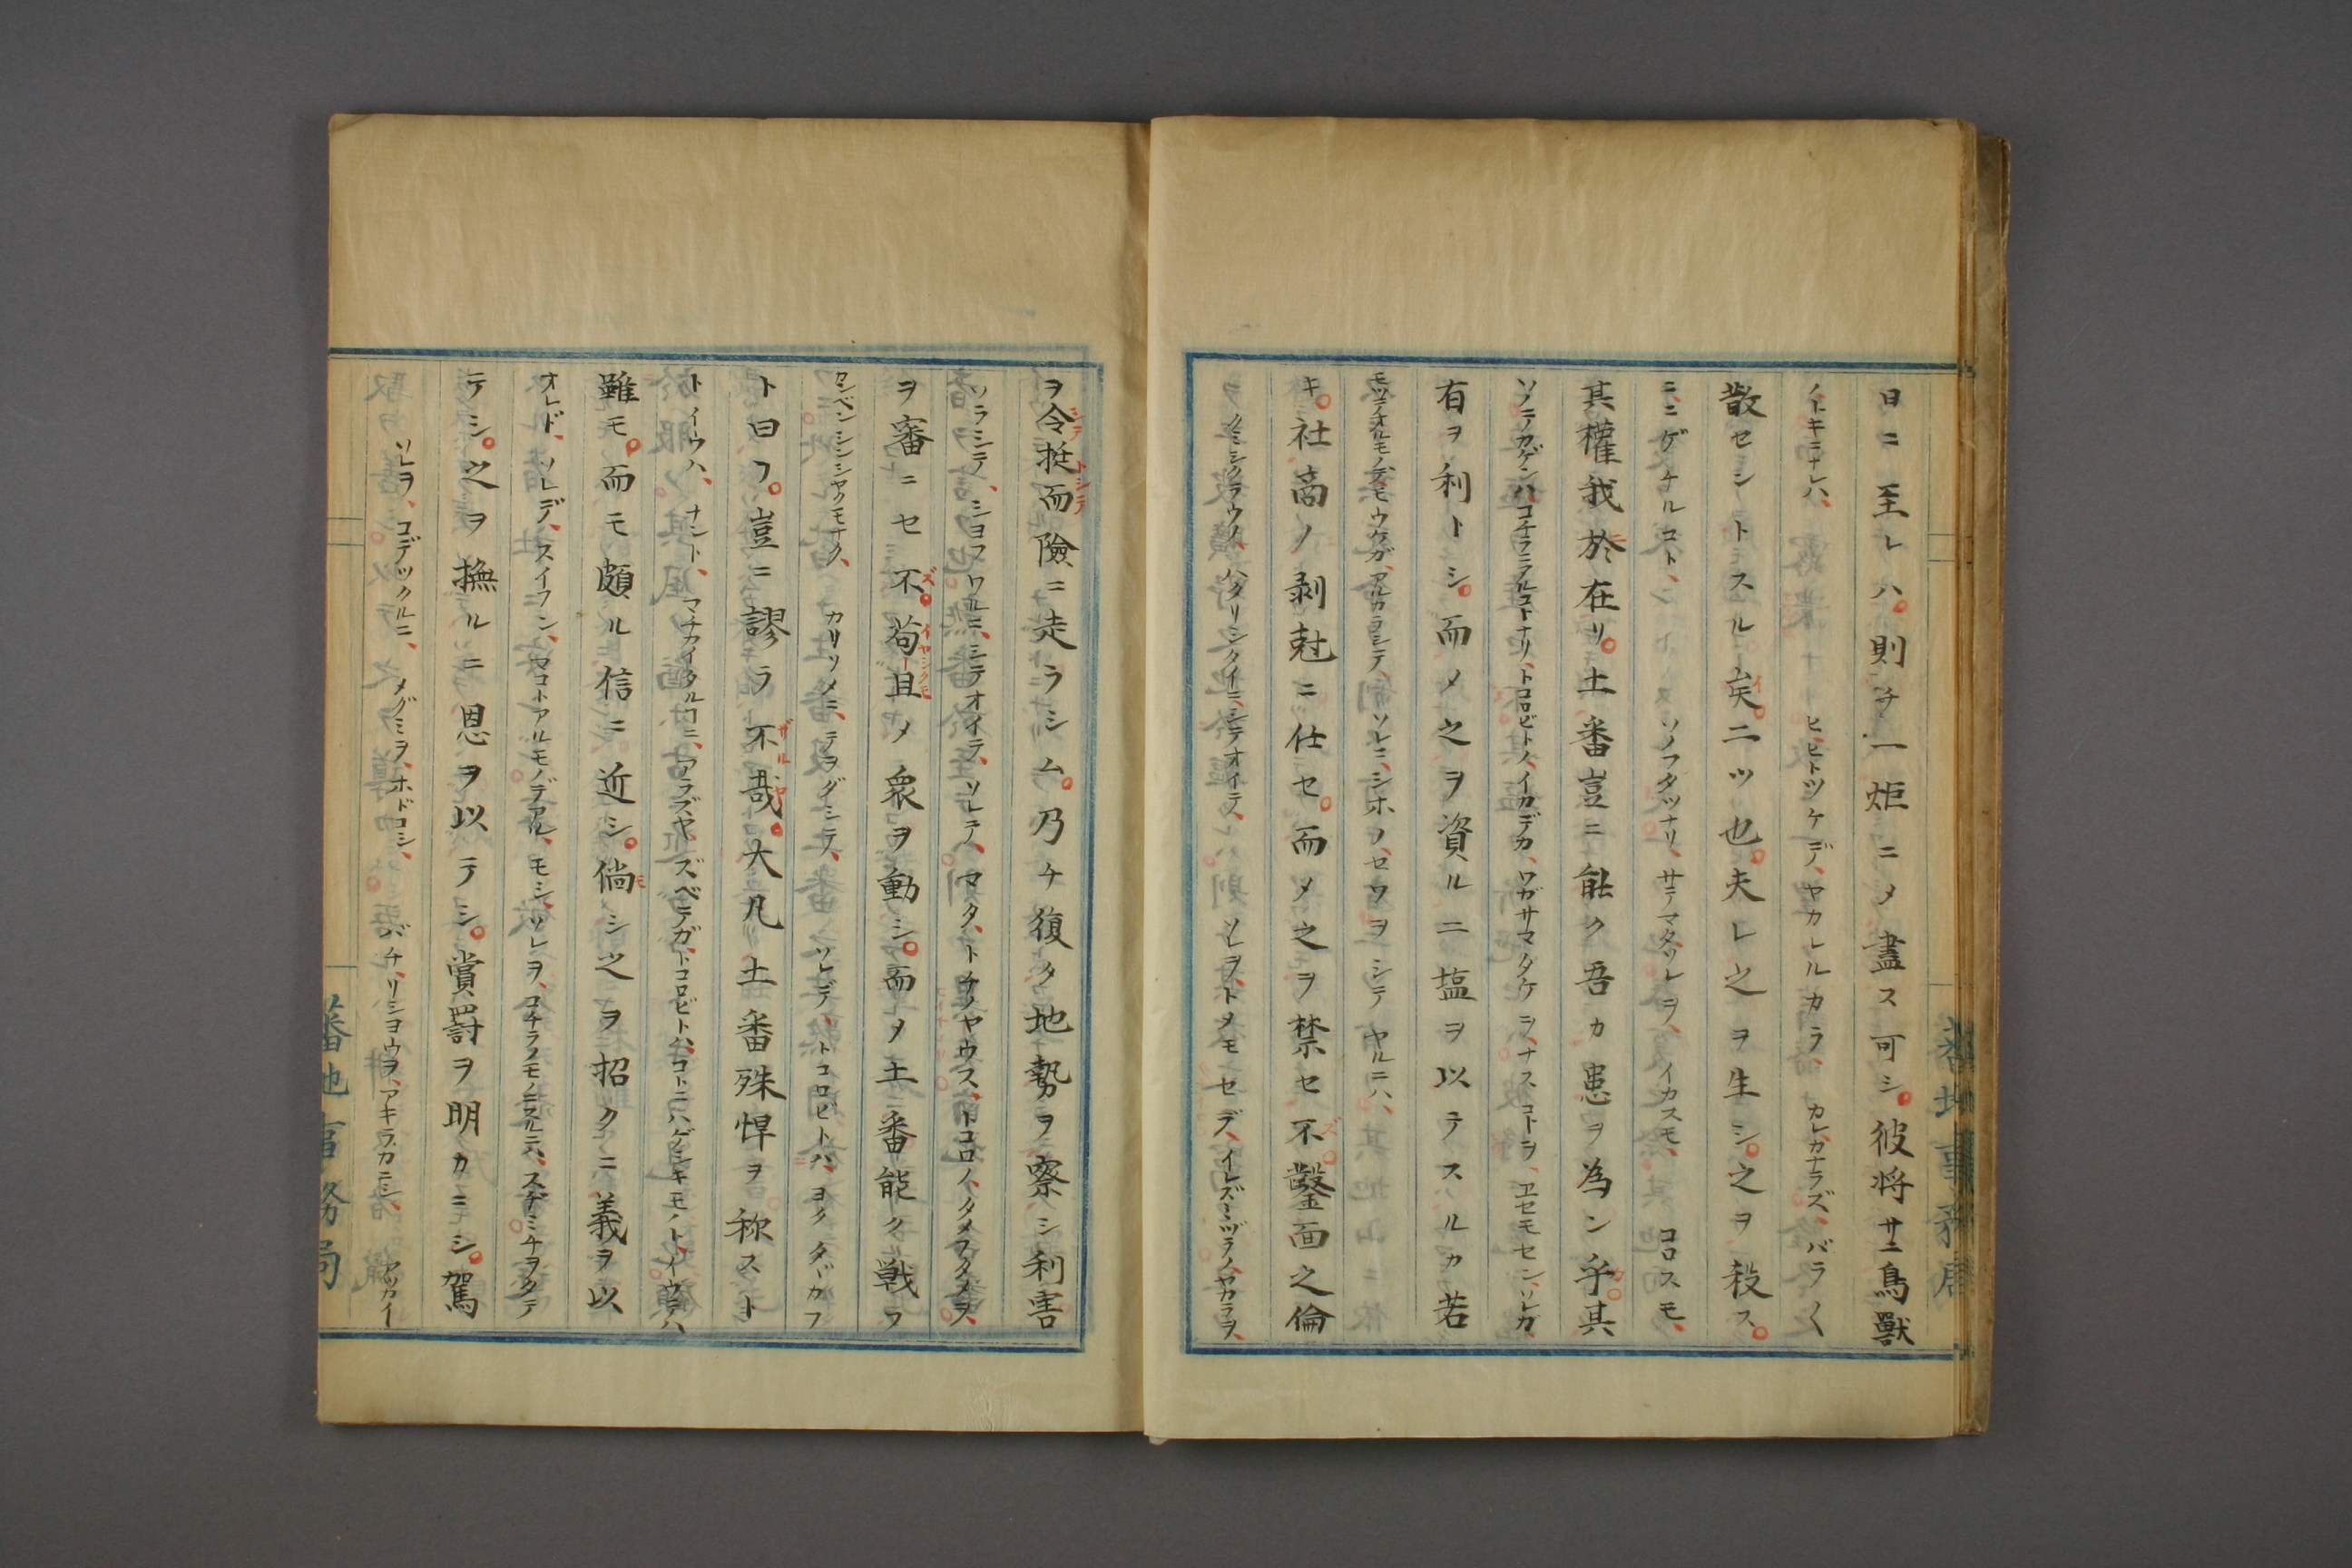 日ニ至レハ。則チ一炬ニメ盡ス可シ。彼将サニ鳥獸
ノトキニナレハ、ヒヒトツケデ、ヤカレルカラ、カレ、カナラズ、バラ〱
散セシトスル矣。二ツ也。夫レ之ヲ生シ。之ヲ殺ス。
ニ、ニゲチルコト、ソノフタツナリ、サテマタ、ソレヲ、イカスモ、コロスモ、
其權我於在リ。土番豈ニ能ク吾カ患ヲ為ン乎。其
ソノテカゲンハ、コチラニアルコトナリ、トコロビトノ、イカデカ、ワガサマタゲヲ、ナスコトヲ、ヱセモセン、ソレガ
有ヲ利トシ。而メ之ヲ資ルニ塩ヲ以テスルカ若
モツテオルモノデモウケガ、アルカラシテ、ソレニ、シホノ、セワヲシテヤルニハ、
キ。社商ノ剥尅ニ仕セ。而メ之ヲ禁セ不。鑿面之倫
ソレヲ、トメモセデ、イレズミヅラノ、ヤカラヲ、
ヲ令挺而險ニ走ラシム。乃チ復タ地勢ヲ察シ利害
ソラシテ、シヨフワルニ、シテオイテ、ソレテ、マタ、トチノヤウス、トコロノ、タメフタメヲ、
ヲ審ニセ不。苟且メ衆ヲ動シ。而メ土番能ク戦フ
カンベンシンシヤクモナク、カリソメニ、テヲダシテ、ソレデ、トコロビトハ、ヨクタヽカフ
ト曰フ。豈ニ謬ラ不哉。大凡土番殊悍ヲ称スト
トイウハ、ナント、マチガイタルコニ、アラズヤ、ズベテガ、トコロビトハ、コトニハゲシキモノト、イウテハ
雖モ。而モ頗ル信ニ近シ。倘シ之ヲ招クニ義ヲ以
オレド、ソレデ、スイフン、マコトアルモノデアル、モシ、ソレヲ、コチラノモノニスルニハ、スヂミチヲタテ
テシ。之ヲ撫ルニ恩ヲ以テシ。賞罰ヲ明カニシ。駕
ソレヲ、コデツクルニ、メグミヲ、ホドコシ、バチ、リシヨウヲ、アキラカニシ、アツカイ
蕃地事務局